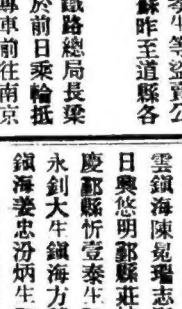 等盜賣公
蘇昨至道縣各
鐵路總局長梁
於前日乘輪抵
專車前往南京
雲鎮海陳晃瑠志
日興悠明鄞縣莊
慶鄞縣忻壹泰生
永釗大生鎮海方
鎮海姜忠汾炳生